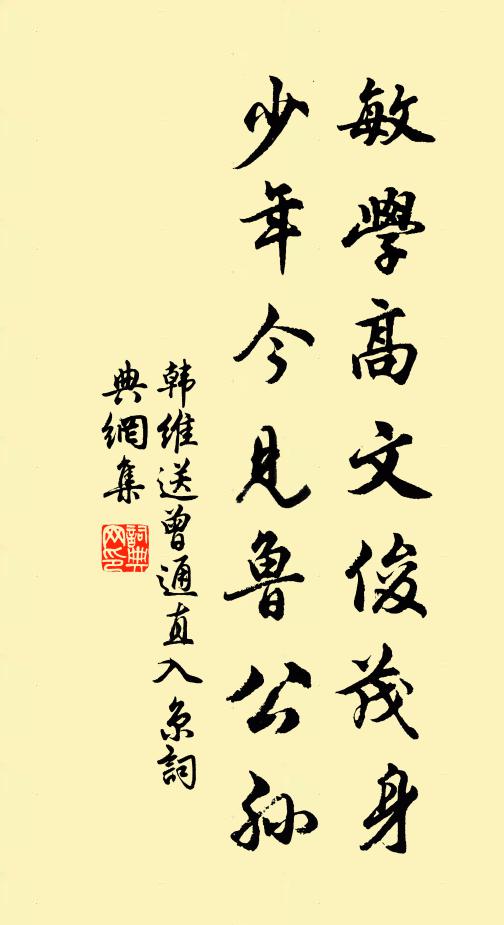 敏學高文俊茂身
少年今見魯公孫
韩維送曾通直入京詞
典網集
詞典
网印